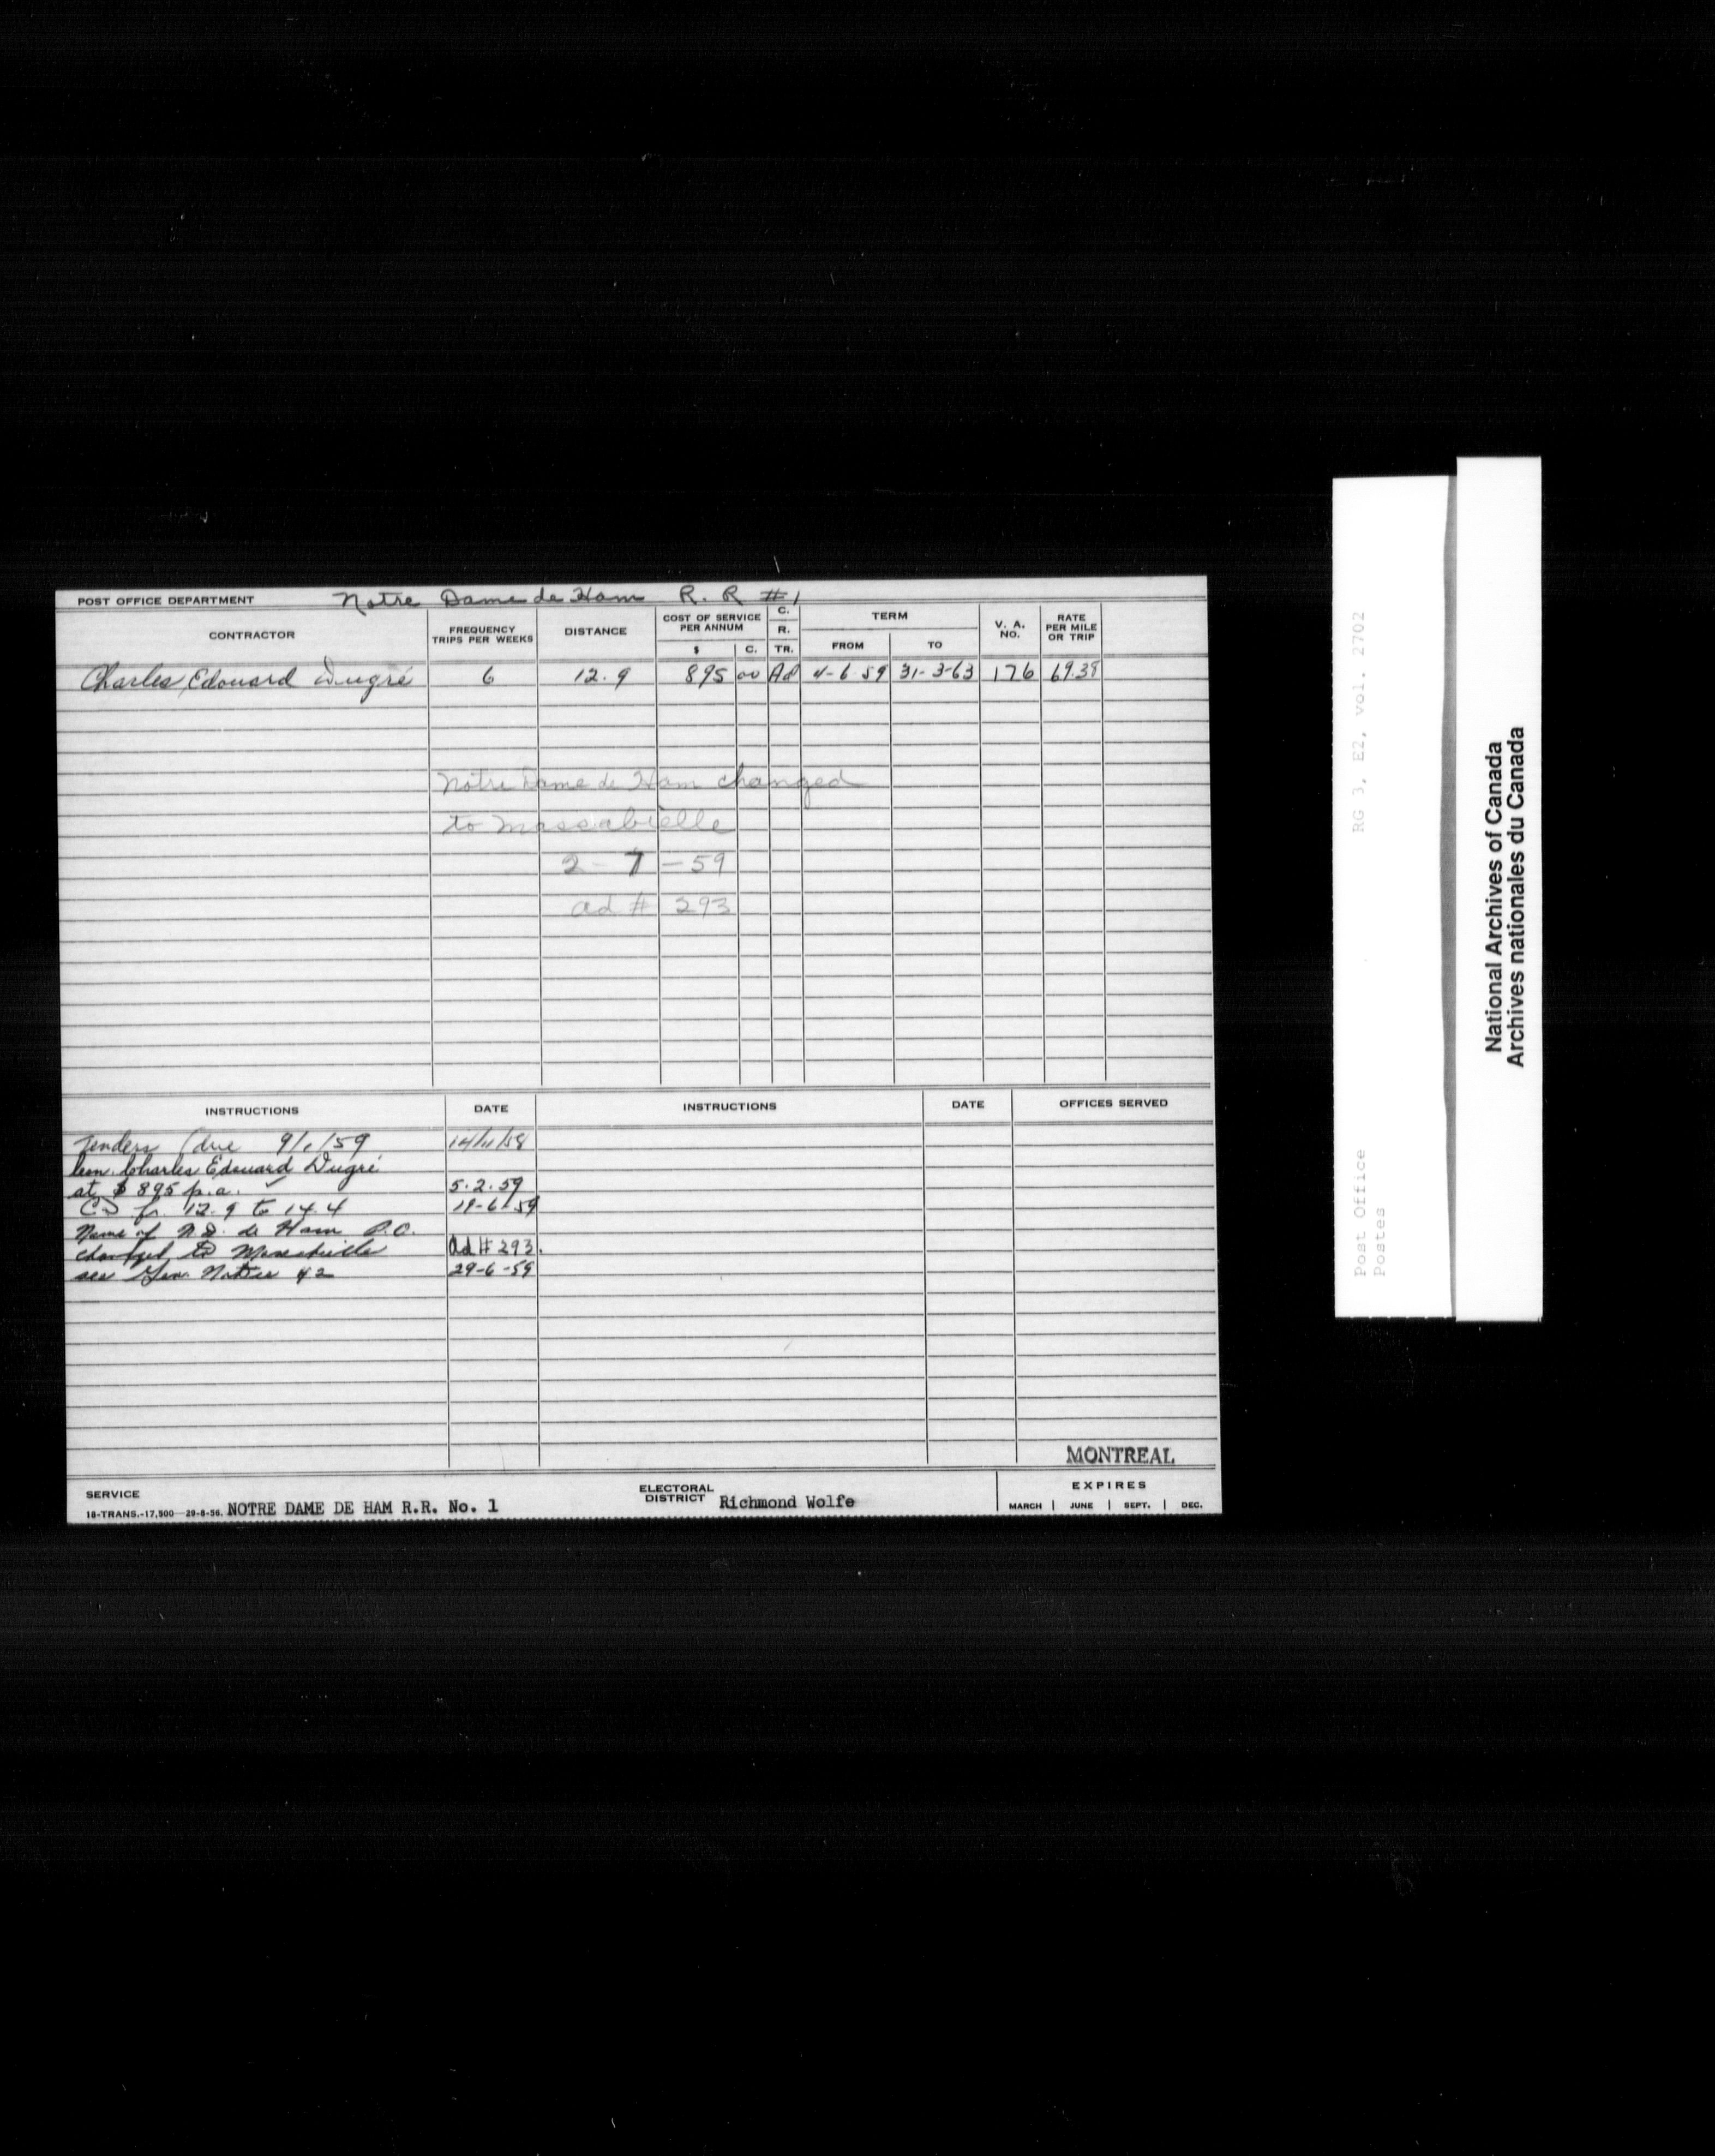 POST OFFICE DEPARTMENT Notre Dame de Ham R. R #1
CONTRACTOR FREQUENCY TRIPS PER WEEKS DISTANCE COST OF SERVICE PER ANNUM $ C. C. R. TR. TERM FROM TO V. A. NO. RATE PER MILE OR TRIP
Charles Edouard Dugré 6 12.9 895 00 Ad 4-6-59 31-3-63 176 69.38
Notre Dame de Ham changed
to Massabielle
2-7-59
ad # 293
INSTRUCTIONS DATE INSTRUCTIONS DATE OFFICES SERVED
Tenders (due 9/1/59 14/11/58
Charles Edouard Dugré
at $895 p.a. 5.2.59
CD fr. 12.9 to 14.4 19-6-59
Name of N.D. de Ham P.O.
changed to Massabielle ad # 293.
see Gen. Notice 42 29-6-59
MONTREAL
SERVICE
18-TRANS.-17,500-29-8-56. NOTRE DAME DE HAM R.R. No. 1
ELECTORAL DISTRICT Richmond Wolfe
EXPIRES
MARCH | JUNE | SEPT. | DEC.
RG 3, E2, vol. 2702
Post Office
Postes
National Archives of Canada
Archives nationales du Canada